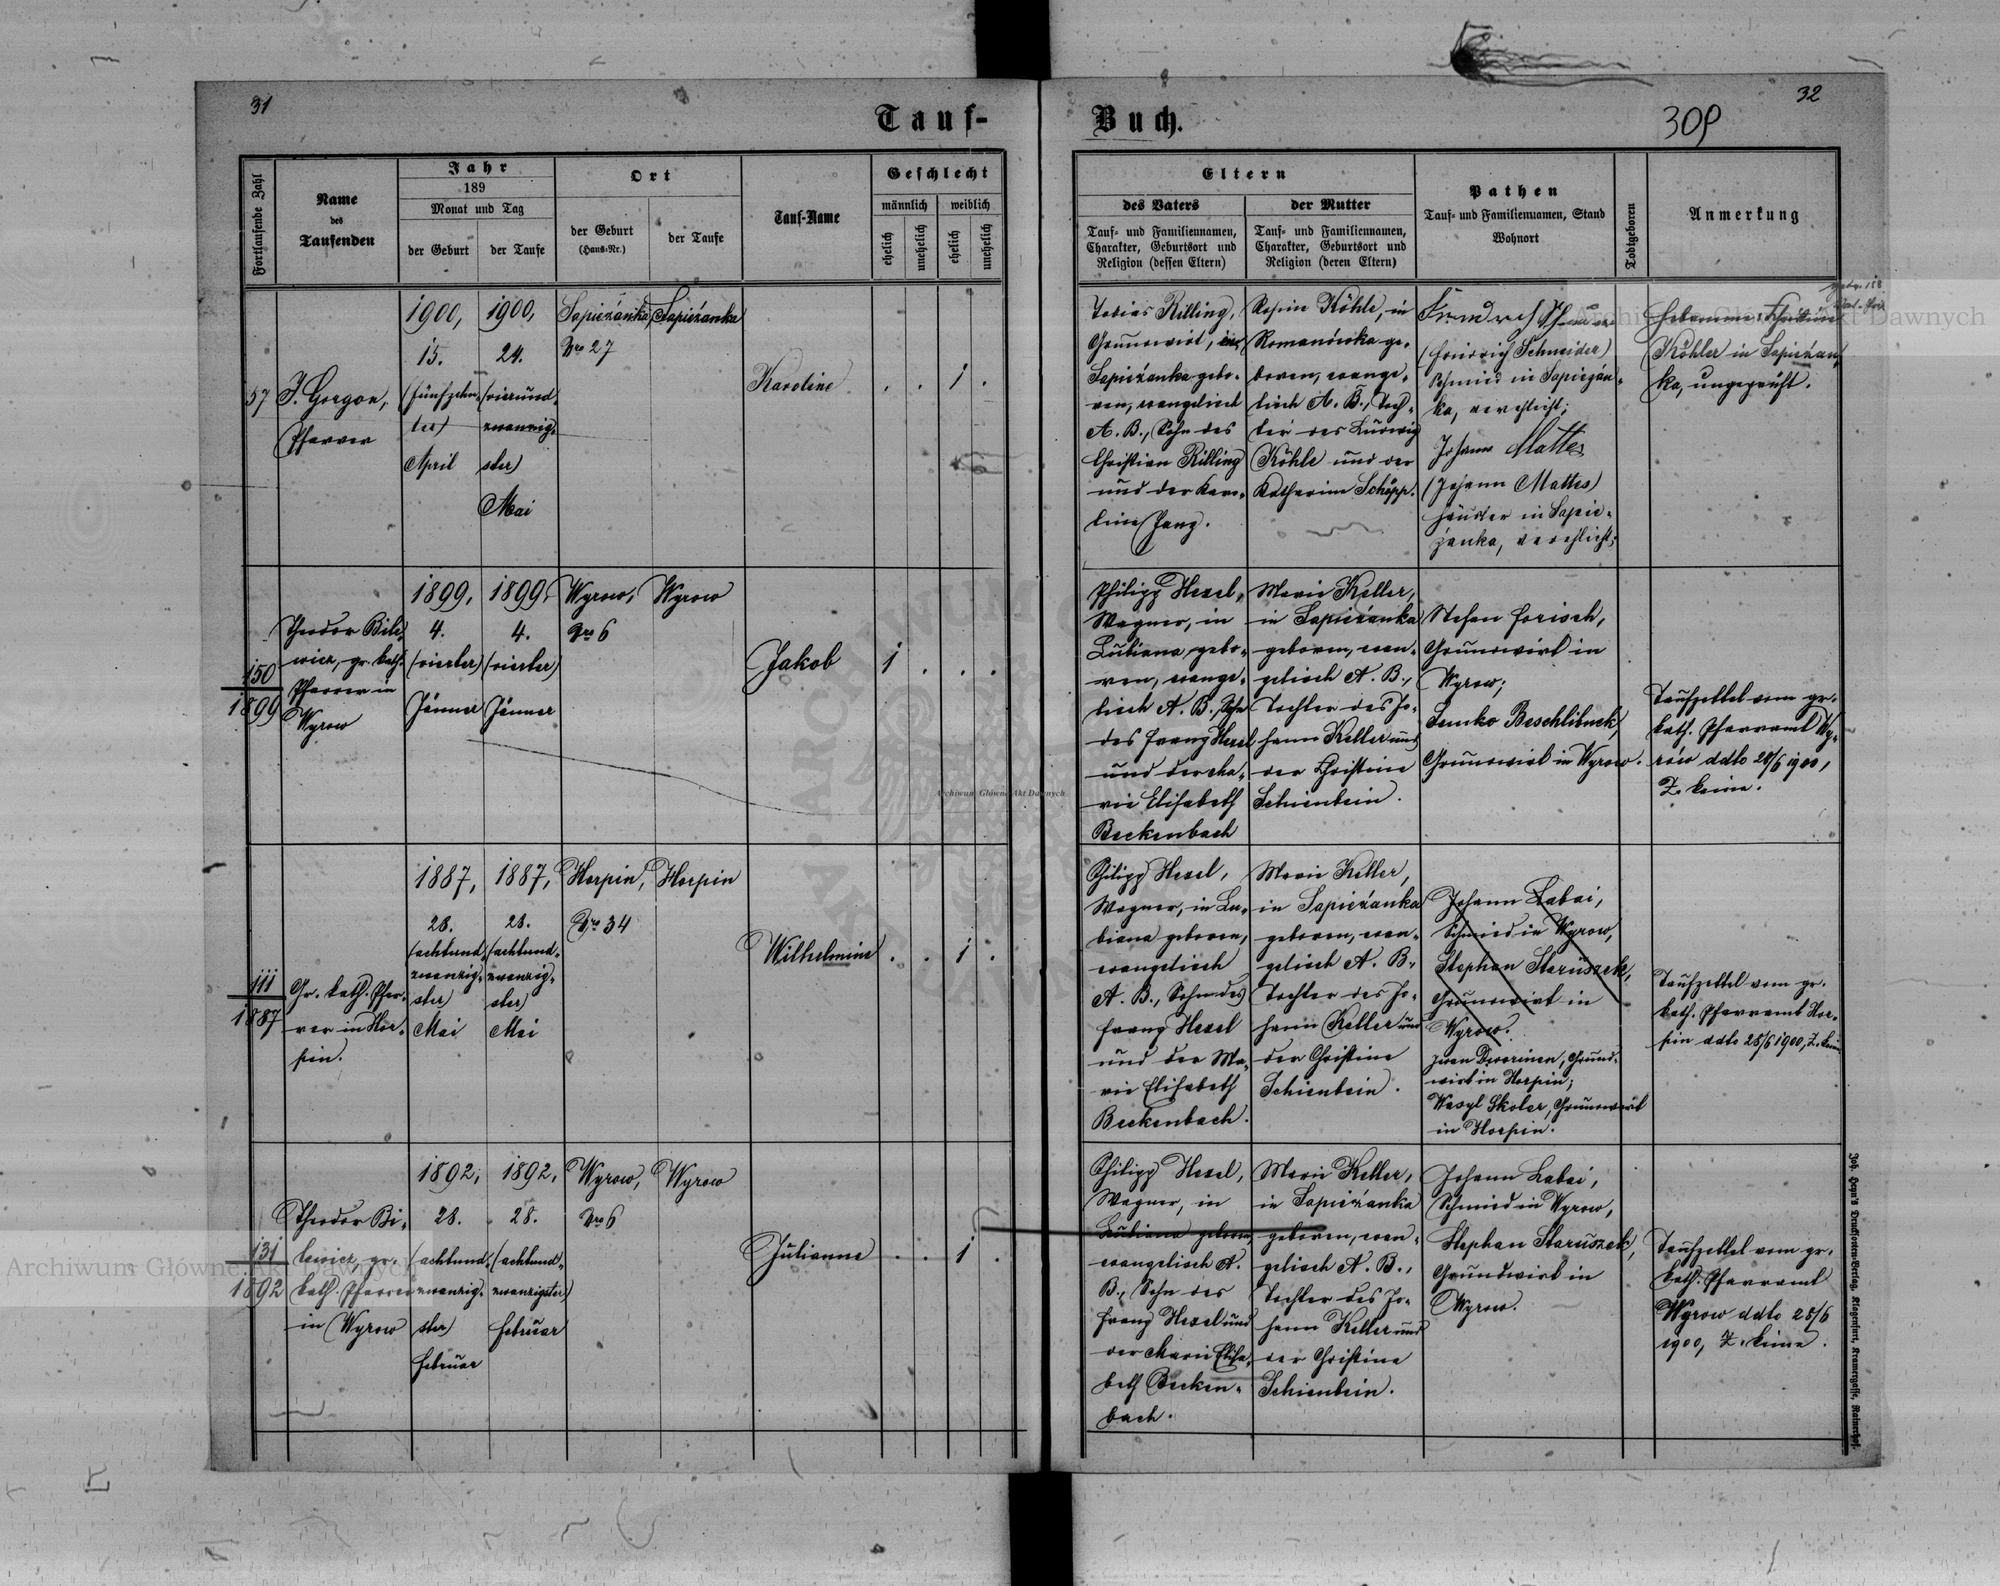 31
32
309
Tauf-
Buch.
Fortlaufende Zahl
Name
des
Taufenden
Jahr
189
Monat und Tag
der Geburt
der Taufe
Ort
der Geburt
(Haus-Nr.)
der Taufe
Tauf-Name
Geschlecht
männlich
weiblich
ehelich
unehelich
ehelich
unehelich
Eltern
des Vaters
Tauf- und Familiennamen,
Charakter, Geburtsort und
Religion (dessen Eltern)
der Mutter
Tauf- und Familiennamen,
Charakter, Geburtsort und
Religion (deren Eltern)
Pathen
Tauf- und Familiennamen, Stand
Wohnort
Todtgeboren
Anmerkung
57
J. Gorgon,
Pfarrer
1900,
15.
(fünfzehn-
ter)
April
1900,
24.
(vierund-
zwanzig-
ster)
Mai
Sapieżanka,
Nro 27
Sapieżanka
Karoline
. . 1 .
Tobias Rilling,
Grundwirt, in
Sapieżanka gebo-
ren, evangelisch
A. B., Sohn des
Christian Rilling
und der Karo-
line Janz.
Rosina Köhle, in
Romanówka ge-
boren, evange-
lisch A. B., Toch-
ter des Ludwig
Köhle und der
Katharina Schöpp.
(Friedrich Schneider)
Schmied in Sapieżan-
ka, verehlicht;
Johann Mattes
(Johann Mattes)
Häusler in Sapie-
żanka, verehlicht;
Hebamme:
Köhler in Sapieżan-
ka, ungeprüft.
150
1899
Theodor Bile-
wicz, gr. kath.
Pfarrer in
Wyrow
1899,
4.
(vierter)
Jänner
1899,
4.
(vierter)
Jänner
Wyrow,
Nro 6
Wyrow
Jakob
1 . . .
Philipp Hexel,
Wagner, in
Lubiana gebo-
ren, evange-
lisch A. B., Sohn
des Franz Hexel
und der Ma-
rie Elisabeth
Beckenbach
Marie Keller,
in Sapieżanka
geboren, evan-
gelisch A. B.,
Tochter des Jo-
hann Keller und
der Christine
Schienbein.
Stefan Forisch,
Grundwirt in
Wyrow;
Semko Beschlibnek,
Grundwirt in Wyrow.
Taufzettel vom gr.
kath. Pfarramt Wy-
rów ddto 28/6 1900,
Z. keine.
111
1887
Gr. kath. Pfar-
rer in Hor-
pin.
1887,
28.
(achtund-
zwanzig-
ster)
Mai
1887,
28.
(achtund-
zwanzig-
ster)
Mai
Horpin,
Nro 34
Horpin
Wilhelmine
. . 1 .
Philipp Hexel,
Wagner, in Lu-
biana geboren,
evangelisch
A. B., Sohn des
Franz Hexel
und der Ma-
rie Elisabeth
Beckenbach.
Marie Keller,
in Sapieżanka
geboren, evan-
gelisch A. B.,
Tochter des Jo-
hann Keller und
der Christine
Schienbein.
Johann Labai,
Schmied in Wyrow,
Stephan Staruszek,
Grundwirt in
Wyrow.
Iwan Dworinen, Grund-
wirt in Horpin;
Wasyl Skolar, Grundwirt
in Horpin.
Taufzettel vom gr.
kath. Pfarramt Hor-
pin ddto 28/6 1900, Z. keine
131
1892
Theodor Bi-
lewicz, gr.
kath. Pfarrer
in Wyrow
1892,
28.
(achtund-
zwanzig-
ster)
Februar
1892,
28.
(achtund-
zwanzigster)
Februar
Wyrow,
Nro 6
Wyrow
Julianne
. . 1 .
Philipp Hexel,
Wagner, in
Lubiana geboren,
evangelisch A.
B., Sohn des
Franz Hexel und
der Marie Elisa-
beth Becken-
bach.
Marie Keller,
in Sapieżanka
geboren, evan-
gelisch A. B.,
Tochter des Jo-
hann Keller und
der Christine
Schienbein.
Johann Labai,
Schmied in Wyrow,
Stephan Staruszek,
Grundwirt in
Wyrow.
Taufzettel vom gr.
kath. Pfarramt
Wyrow ddto 28/6
1900, Z. keine.
Joh. Heyn's Drucksorten-Verlag, Klagenfurt, Kramergasse, Rainerhof.
Archiwum Główne Akt Dawnych
Archiwum Główne Akt Dawnych
Archiwum Główne Akt Dawnych